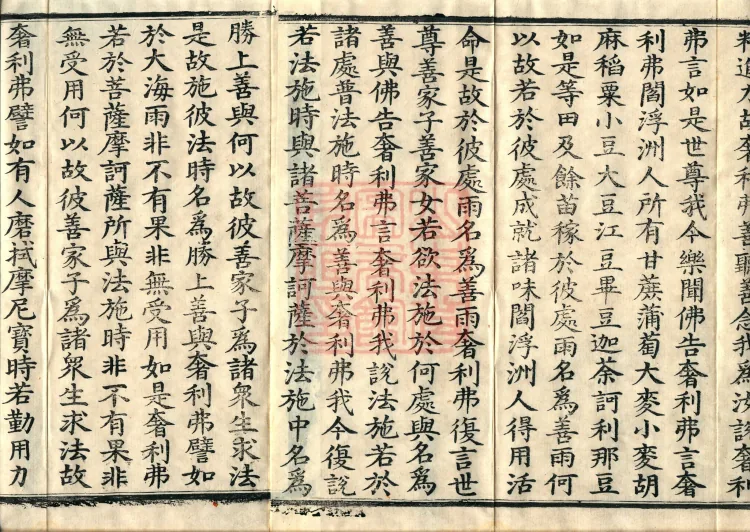 精進力故奢利弗善聽善念我爲汝說奢利
弗言如是世尊我今樂聞佛告奢利弗言奢
利弗閻浮洲人所有甘蔗蒲萄大麥小麥胡
麻稻粟小豆大豆江豆畢豆迦荼訶利那豆
如是等田及餘苗稼於彼處雨名爲善雨何
以故若於彼處成就諸味閻浮洲人得用活
命是故於彼處雨名爲善雨奢利弗復言世
尊善家子善家女若欲法施於何處與名爲
善與佛告奢利弗言奢利弗我說法施若於
諸處普法施時名爲善與奢利弗我今復說
若法施時與諸菩薩摩訶薩於法施中名爲
勝上善與何以故彼善家子爲諸衆生求法
是故施彼法時名爲勝上善與奢利弗譬如
於大海雨非不有果非無受用如是奢利弗
若於菩薩摩訶薩所與法施時非不有果非
無受用何以故彼善家子爲諸衆生求法故
奢利弗譬如有人磨拭摩尼寶時若勤用力